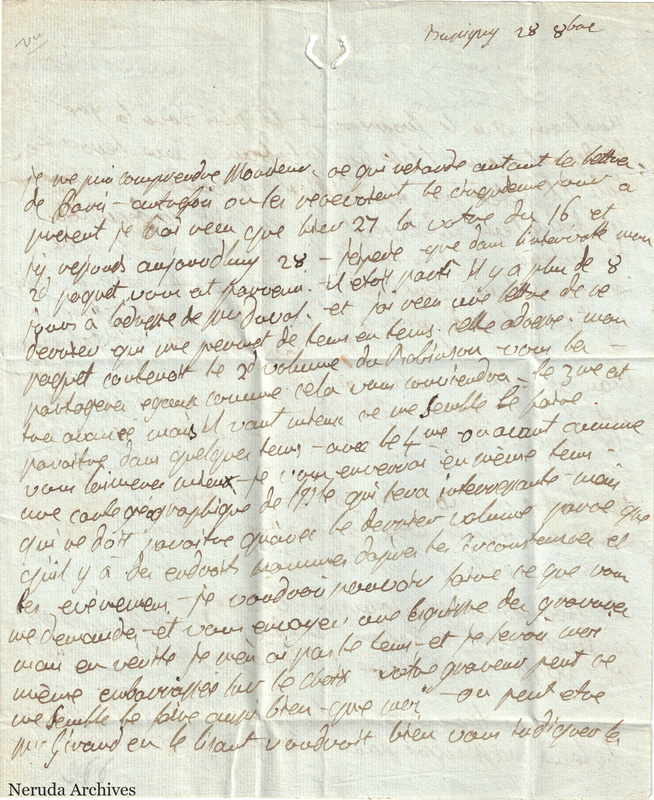 28 8bre
je ne puis comprendre Monsieur, ce qui retarde autant les lettres
de Paris - autrefois on les recevoient le cinquieme jour a
present je n'ai recu que hier 27 la votre du 16 et
j'y reponds aujourdhuy 28 - j'espere que dans l'intervalle mon
2d paquet vous est parvenu. il etoit parti il y a plus de 8
jours à l'adresse de mr - et j'ai recu une lettre de ce
dernier qui me permet de tems en tems cette adresse. mon
paquet contenoit le 2d volume du Robinson - vous le
partagerez comme cela vous conviendra - le 3me est
tres avancé mais il vaut mieux ce me semble le faire
paroitre dans quelques tems - avec le 4me ou avant comme
vous l'aimerez mieux - je vous enverrai en même tems -
une carte géographique de l'isle qui sera interressante mais
qui ne doit paroitre qu'avec le dernier volume parce que
qu'il y à des endroits nommés d'apres les circonstances et
les evènemens - je voudrois pouvoir faire ce que vous
me demandez - et vous envoyer une esquisse des gravures
mais en verité je n'en ai pas le tems - et je serois moi
même embarrassée sur le choix votre graveur peut ce
me semble le faire aussi bien que moi - ou peut etre
mr en le lisant voudroit bien vous indiquer les
Neruda Archives